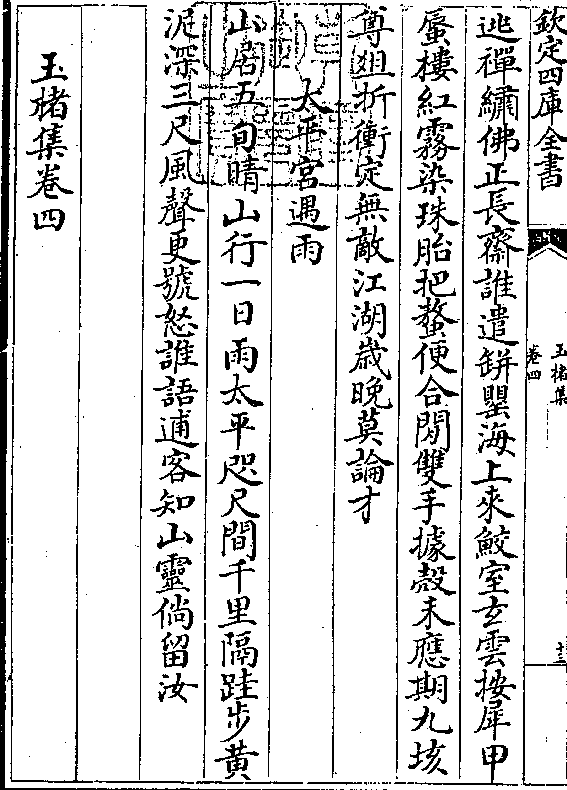 欽定四庫全書
玉楮集
卷四
十三
逃禪繡佛正長齋誰遣缾罌海上來鮫室玄雲按犀甲
蜃樓紅霧染珠胎把螯便合閒雙手據殻未應期九垓
尊俎折衝定無敵江湖歲晚莫論才
太平宮遇雨
山居五旬晴山行一日雨太平咫尺間千里隔跬步黄
泥深三尺風聲更號怒誰語逋客知山靈倘留汝
玉楮集卷四